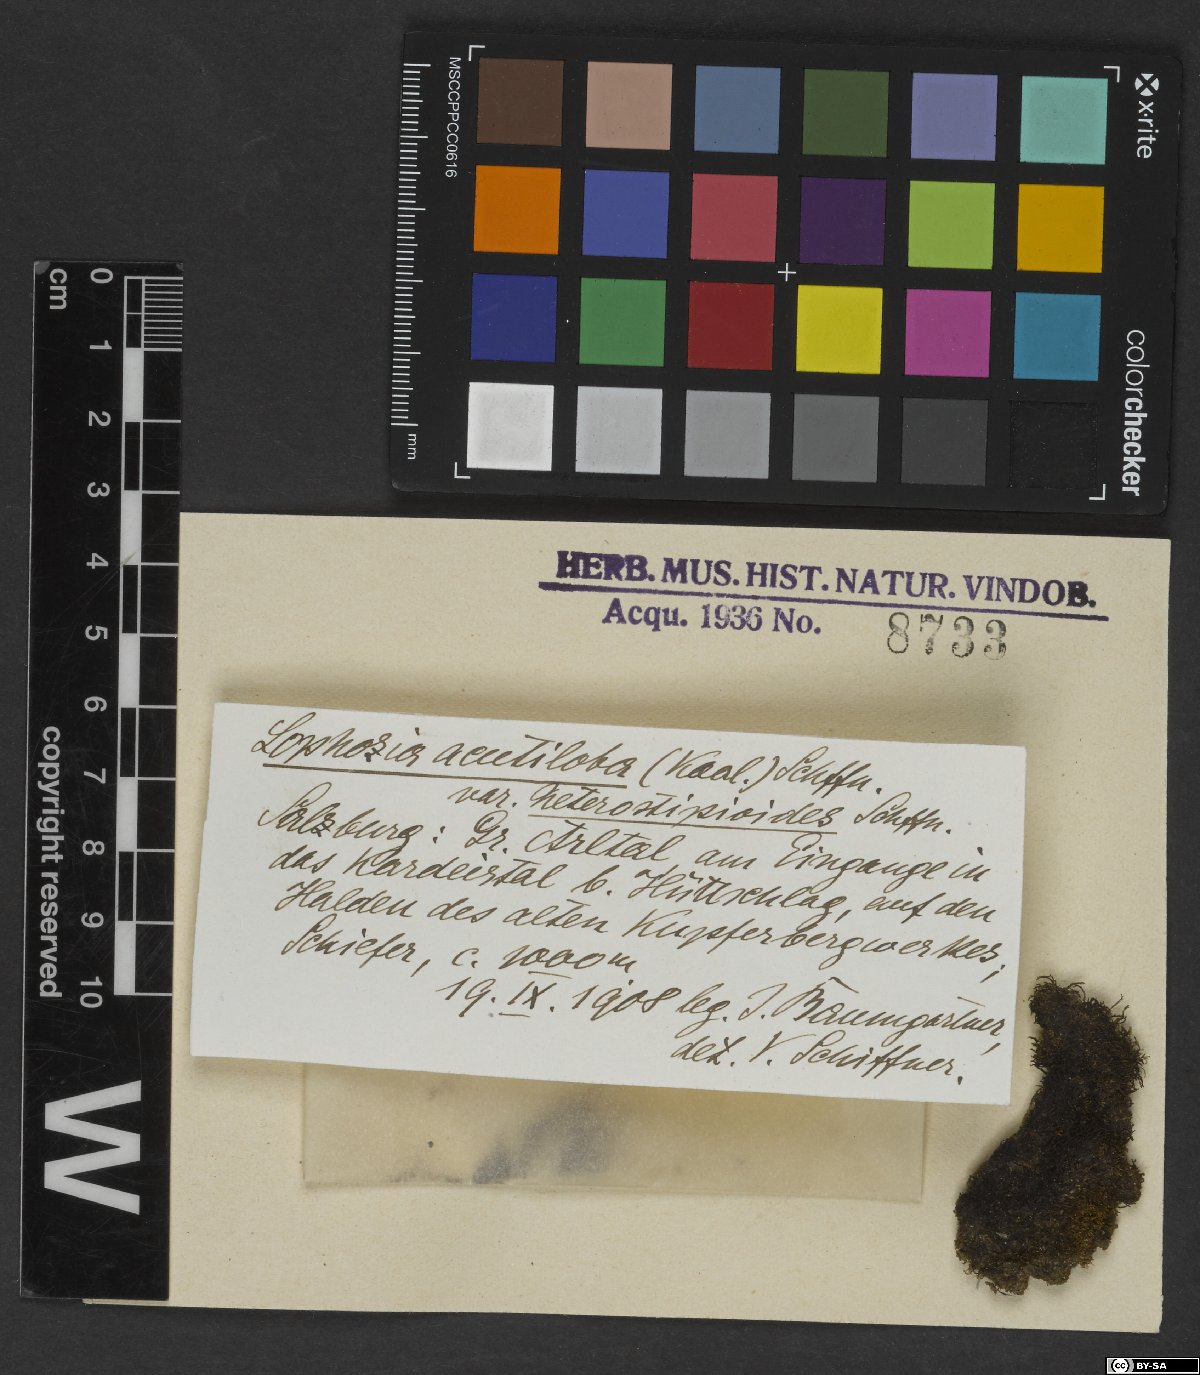 MSCCPPCC0616
x-rite
colorchecker
mm
cm
0 1 2 3 4 5 6 7 8 9 10
copyright reserved
W
HERB. MUS. HIST. NATUR. VINDOB.
Acqu. 1936 No. 8733
Lophozia acutiloba (Kaal.) Schffn.
var. heterostipioides Schffn.
Salzburg: Gr. Arltal, am Eingange in
das Kardeistal b. Hüttschlag, auf den
Halden des alten Kupferbergwerkes;
Schiefer, c. 1000m
19. IX. 1908 leg. J. Baumgartner,
det. V. Schiffner.
cc BY-SA